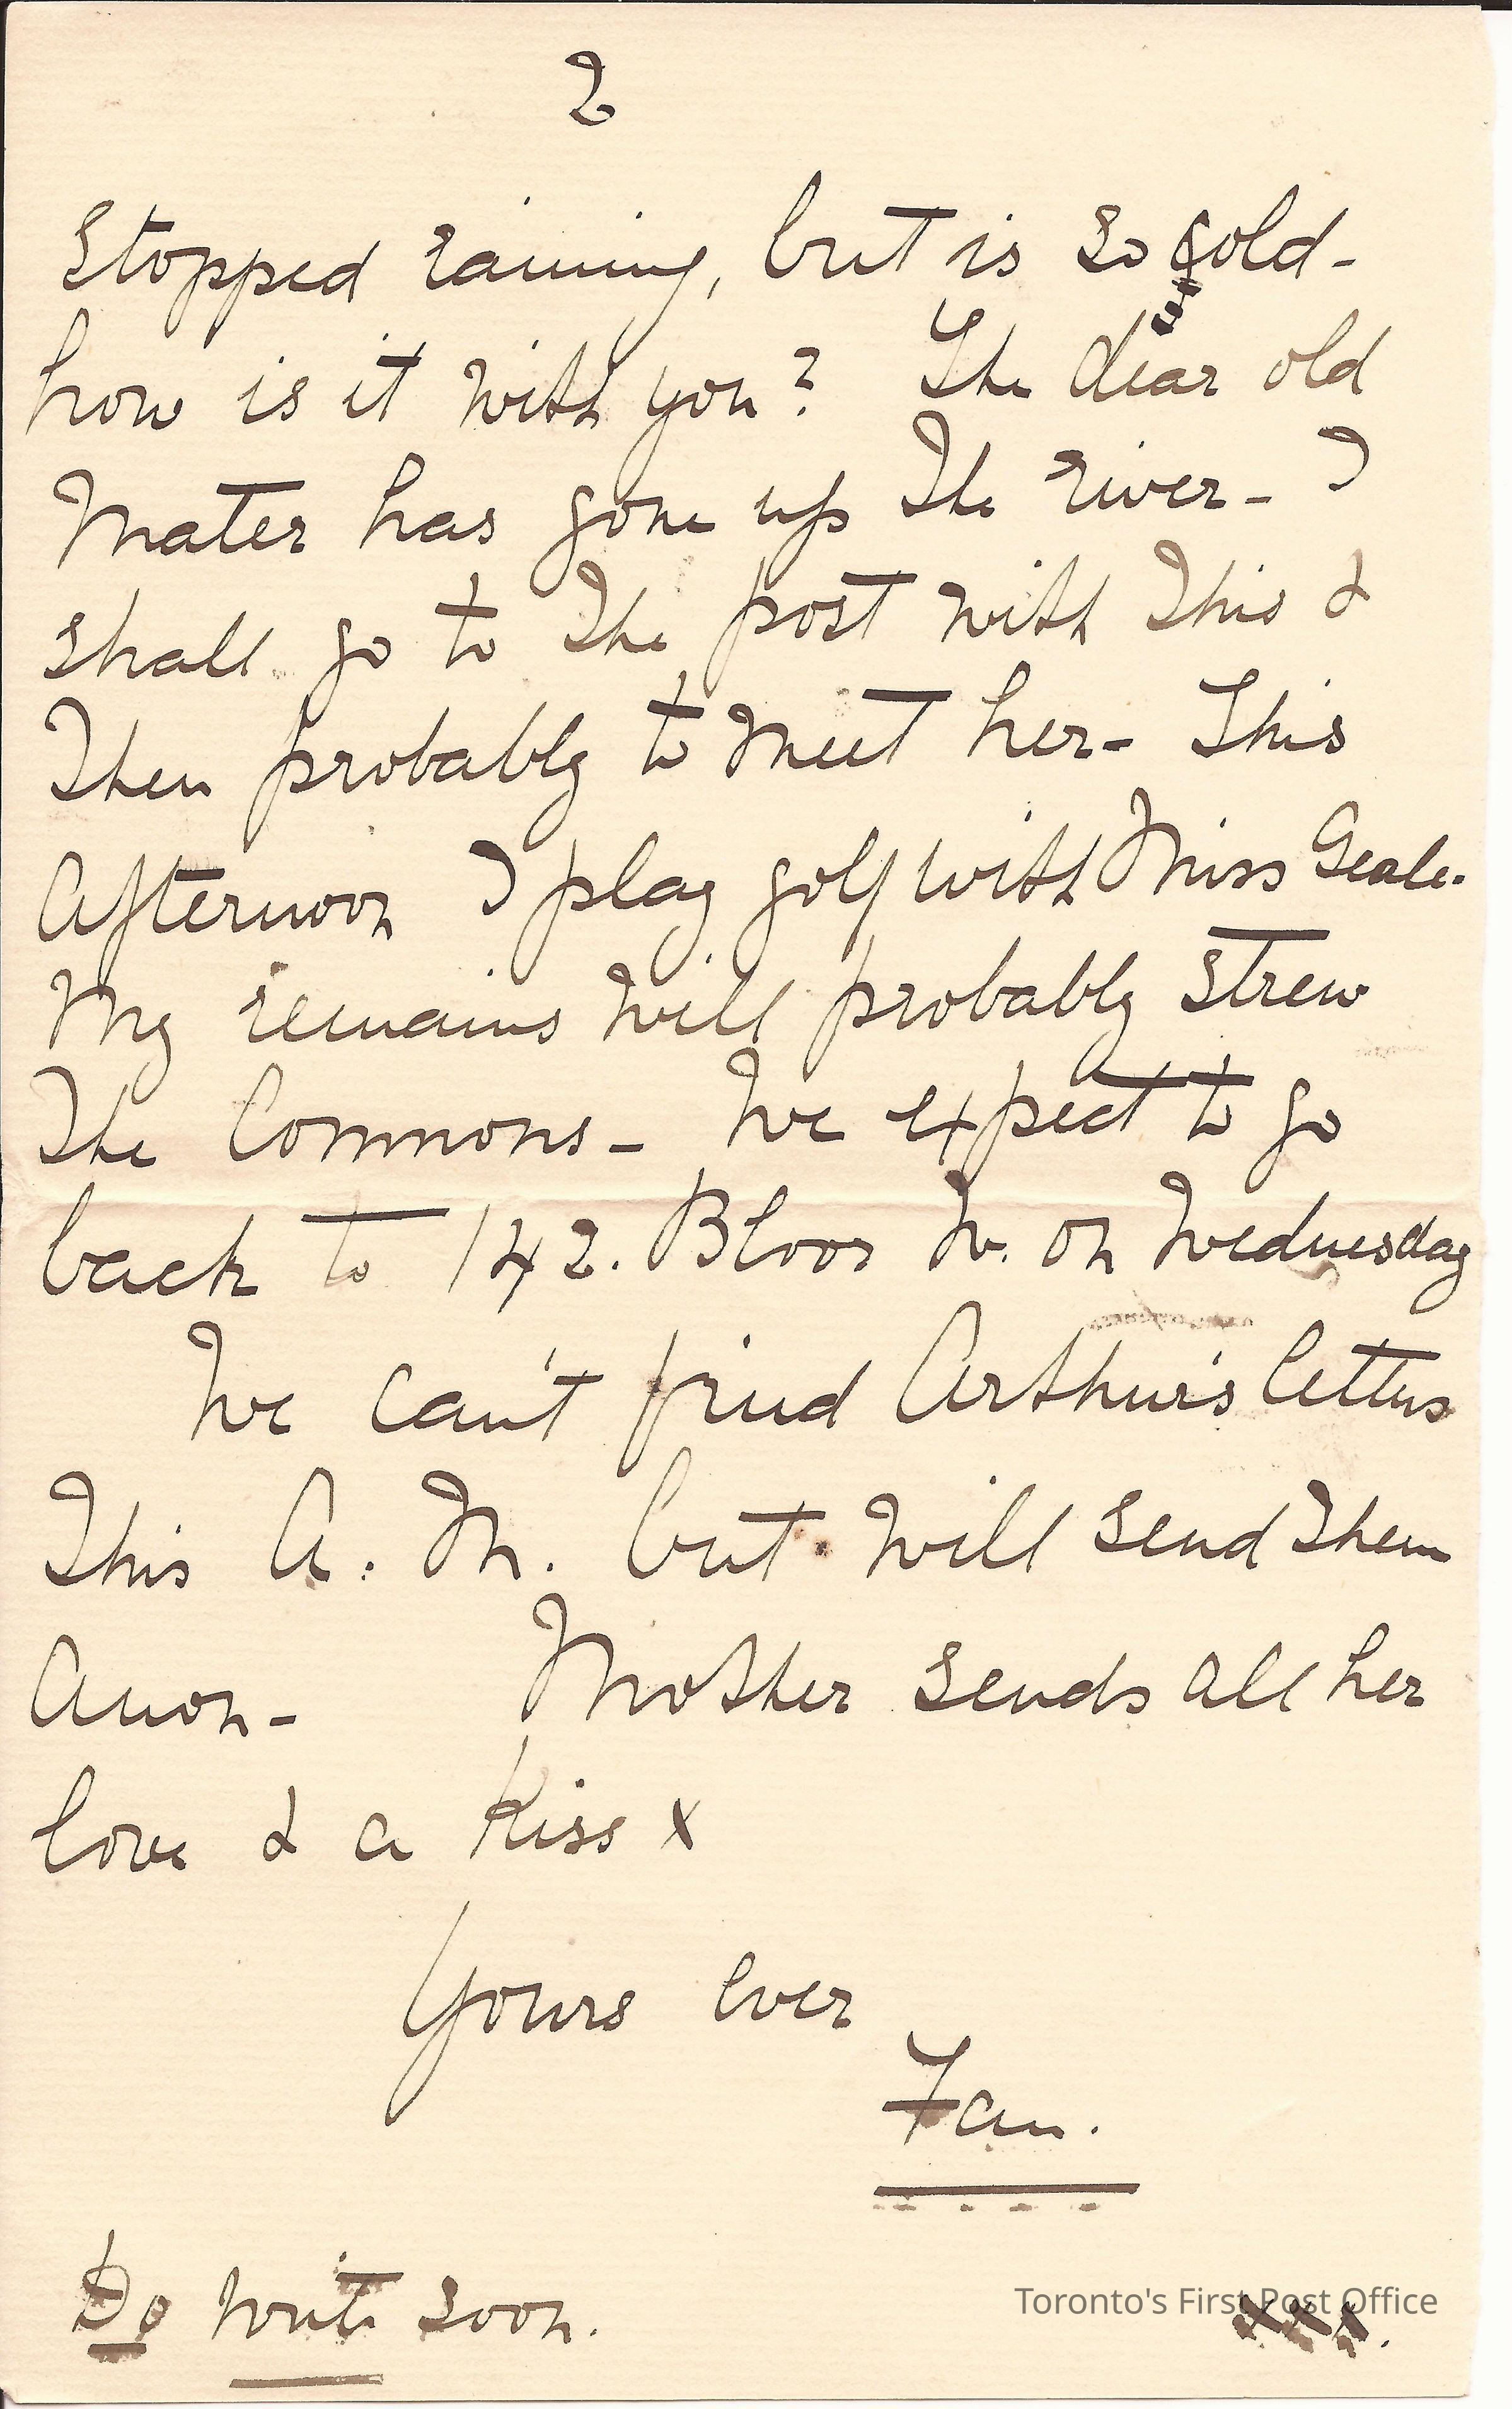 2
Stopped raining, but is so cold-
how is it with you? The dear old
Mater has gone up the river- I
shall go to the post with this &
then probably to meet her- This
afternoon I play golf with Miss Geale.
My remains will probably strew
the Commons- We expect to go
back to 142. Bloor W. on Wednesday
We can't find Arthur's letters
this A.M. but will send them
anon- Mother sends all her
love & a kiss x
Yours ever
Fan.
Do write soon.
xxx.
Toronto's First Post Office